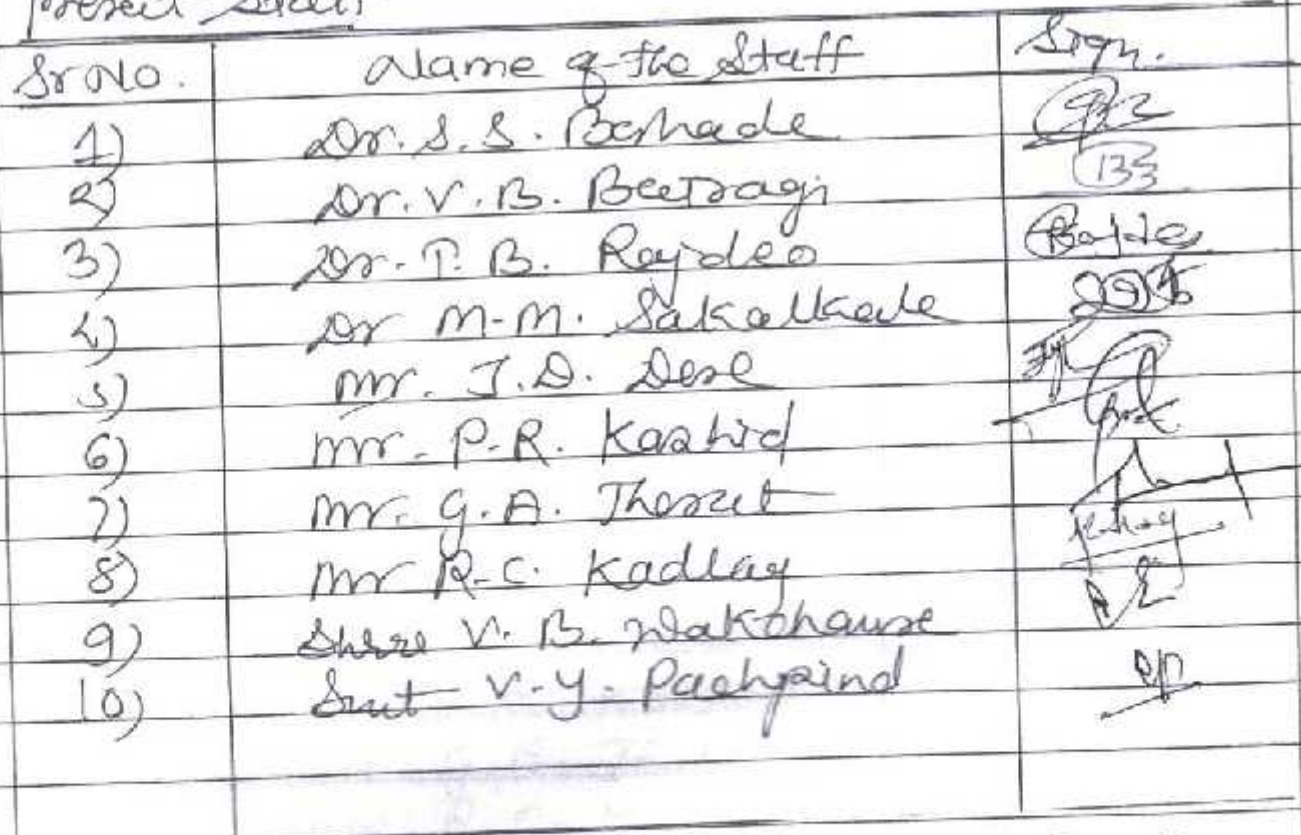 present staff
Sr No. Name of the Staff Sign.
1) Dr. S. S. Bebhade
2) Dr. V. B. Bairagi
3) Dr. P. B. Rajdeo
4) Dr M.M. Sakalkale
5) Mr. J.D. Dese
6) Mr. P.R. Kashid
7) Mr. G.A. Thorat
8) Mr R.C. Kadlag
9) Shree V. B. Wakchaure
10) Smt V.Y. Pachpind